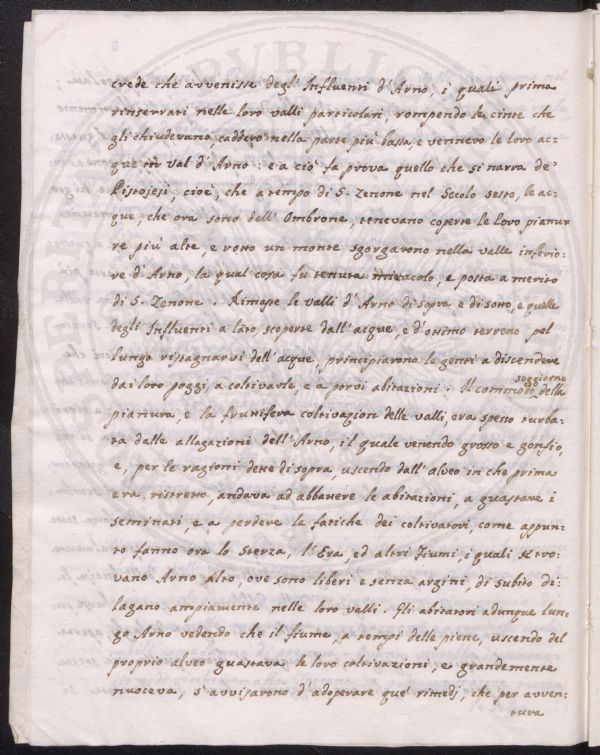 crede che avvenisse degl' Influenti d'Arno, i quali prima
rinserrati nelle loro valli particolari, rompendo le cinte che
gli chiudevano, caddero nella parte più bassa, e vennero le loro ac-
que in val d'Arno: e a ciò fa prova quello che si narra de'
Pistojesi, cioè, che a tempo di S. Zenone nel Secolo sesto, le ac-
que, che ora sono dell' Ombrone, tenevano coperte le loro pianu-
re più alte, e rotto un monte sgorgarono nella valle inferio-
re d'Arno, la qual cosa fu tenuta miracolo, e posta a merito
di S. Zenone. Rimase le valli d'Arno di sopra e di sotto, e quelle
degli Influenti a lato scoperte dall'acque, e d'ottimo terreno pel
lungo ristagnarvi dell'acque, principiarono le genti a discendere
dai loro poggi, a coltivarle, e a porvi abitazioni. Il commodo soggiorno della
pianura, e la fruttifera coltivazion delle valli, era spesso turba-
ta dalle allagazioni dell'Arno, il quale venendo grosso e gonfio,
e, per le ragioni dette di sopra, uscendo dall'alveo in che prima
era ristretto, andava ad abbattere le abitazioni, a guastare i
seminati, e a perdere le fatiche dei coltivatori, come appun-
to fanno ora lo Sterza, l'Era, ed altri Fiumi, i quali se tro-
vano Arno alto, ove sono liberi e senza argini, di subito di-
lagano ampiamente nelle loro valli. Gli abitatori adunque lun-
go Arno vedendo che il fiume, a tempi delle piene, uscendo del
proprio alveo guastava le loro coltivazioni, e grandemente
nuoceva, s'avvisarono d'adoperare que' rimedj, che per avven-
tura